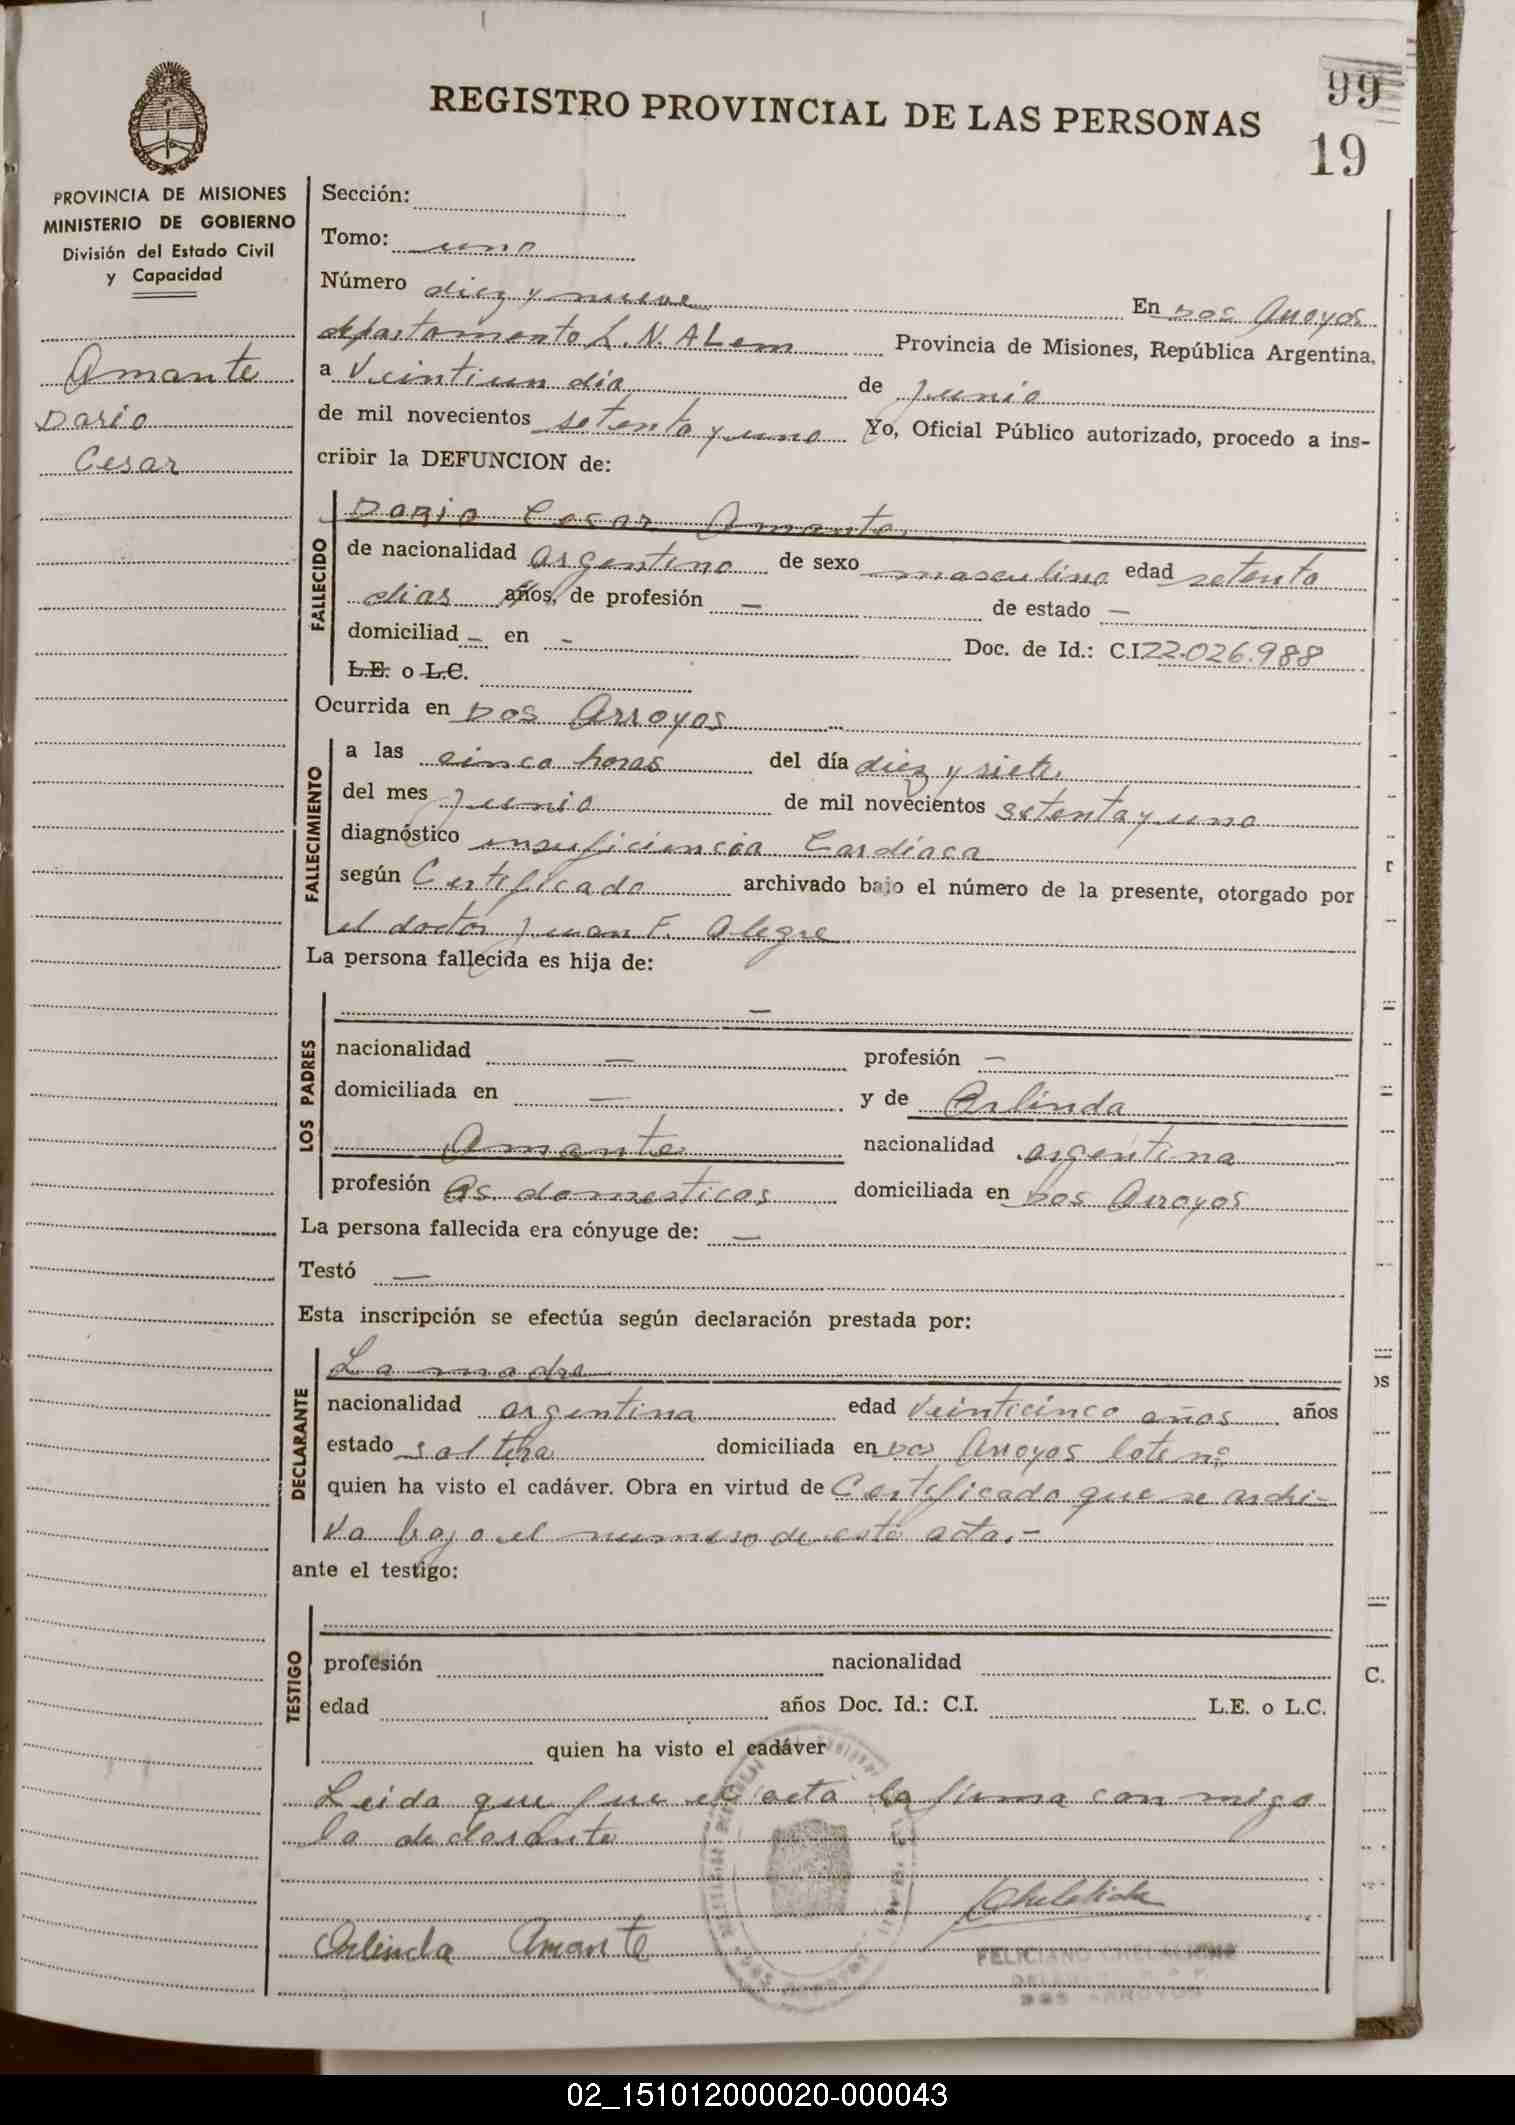 99
REGISTRO PROVINCIAL DE LAS PERSONAS
19
PROVINCIA DE MISIONES
MINISTERIO DE GOBIERNO
División del Estado Civil
y Capacidad
Amante
Dario
Cesar
Sección:
Tomo: uno
Número diez y nueve En Dos Arroyos
departamento L.N. ALem Provincia de Misiones, República Argentina,
a Veintiun día de junio
de mil novecientos setenta y uno Yo, Oficial Público autorizado, procedo a ins-
cribir la DEFUNCION de:
FALLECIDO
Dario Cesar Amante
de nacionalidad argentino de sexo masculino edad setenta
dias años, de profesión — de estado —
domiciliad – en – Doc. de Id.: C.I. 22.026.988
L.E. o L.C.
Ocurrida en Dos Arroyos
FALLECIMIENTO
a las cinco horas del día diez y siete
del mes junio de mil novecientos setenta y uno
diagnóstico insuficiencia Cardíaca
según Certificado archivado bajo el número de la presente, otorgado por
el doctor Juan F. Alegre
La persona fallecida es hija de:
LOS PADRES
—
nacionalidad — profesión —
domiciliada en — y de Arlinda
Amante nacionalidad argentina
profesión Qs. domesticos domiciliada en Dos Arroyos
La persona fallecida era cónyuge de: —
Testó —
Esta inscripción se efectúa según declaración prestada por:
DECLARANTE
La madre
nacionalidad argentina edad Veinticinco años años
estado soltera domiciliada en Dos Arroyos lote nº
quien ha visto el cadáver. Obra en virtud de Certificado que se archi-
va bajo el numero de esta acta.-
ante el testigo:
TESTIGO
profesión nacionalidad
edad años Doc. Id.: C.I. L.E. o L.C.
quien ha visto el cadáver
Leida que fue el acta la firma con migo
la declarante
Arlinda Amante
FELICIANO
DOS ARROYOS
os
C.
02_151012000020-000043